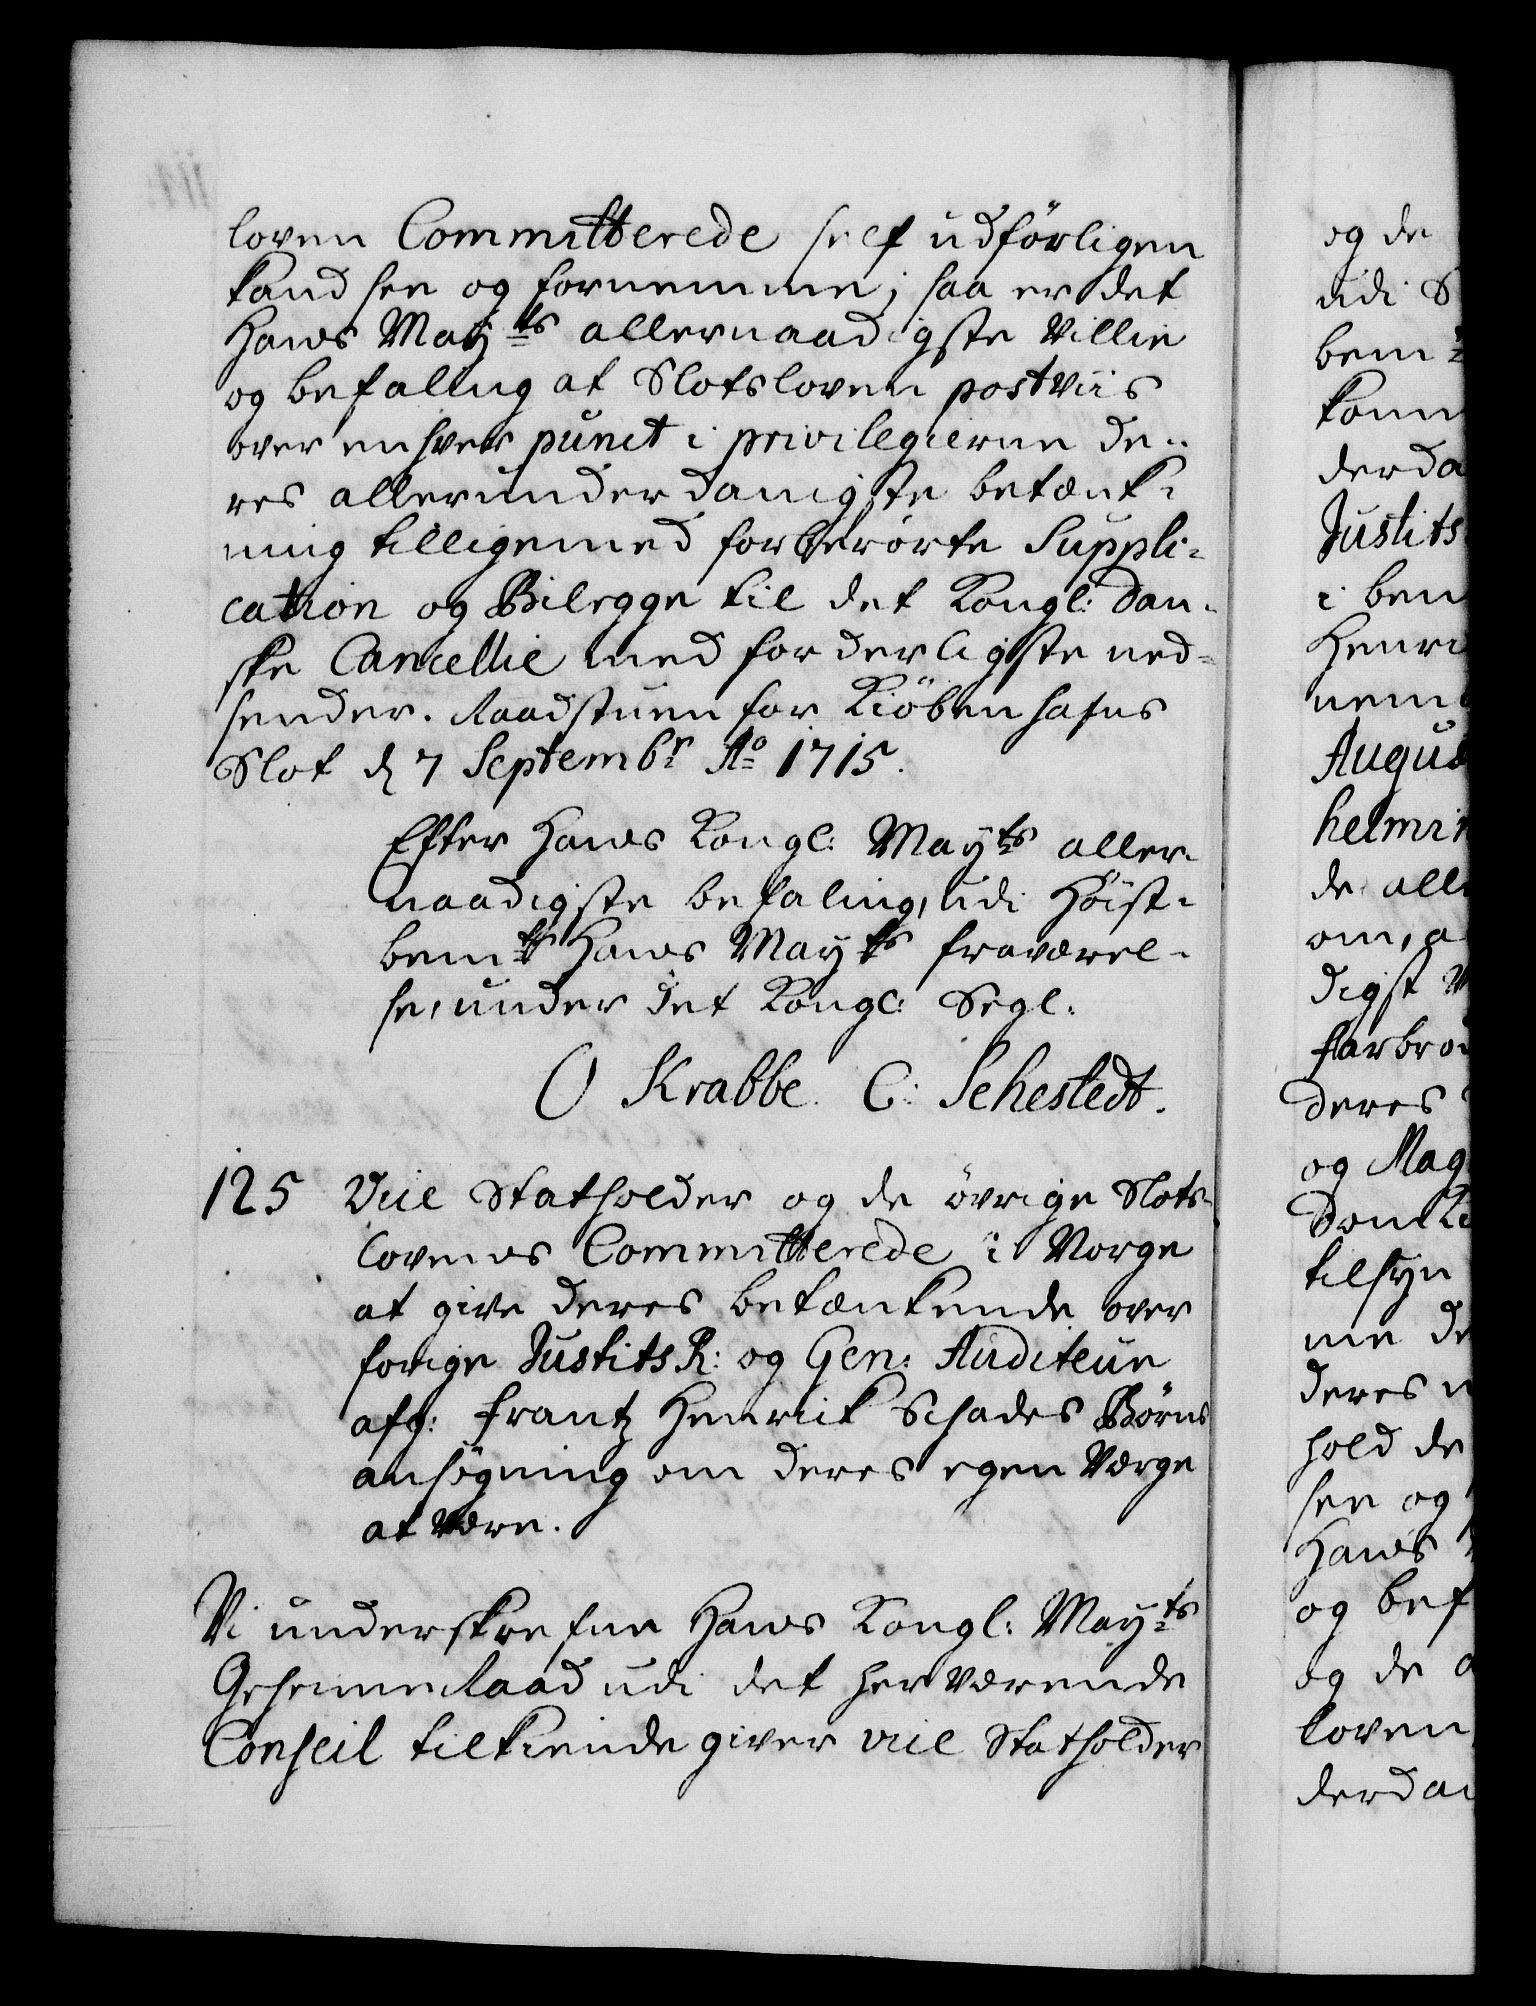 loven Committerede self udförligen
kand see og fornemme; saa er det
Hans Mayts allernaadigste Villie
og befaling at Slotsloven postviis
over enhver punct i privilegierne de-
res allerunderdanigste betænk-
ning tilligemed forberörte Suppli-
cation og Bilegge til det Kongl: Dan-
ske Cancellie med forderligste ned-
sender. Raadstuen for Kiöbenhafns
Slot d 7 Septembr Ao 1715.
Efter Hans Kongl: Mayts aller-
naadigste befaling, udi Höist-
bemte Hans Mayts fraværel-
se, under det Kongl: Segl.
O Krabbe. C: Sehestedt.
125 Vice Statholder og de övrige Slots-
lovens Committerede i Norge
at give deres betænkende over
forige Justits R: og Gen: Auditeur
afg: Frantz Henrick Schades Börns
ansögning om deres egen Værge
at være.
Vi underskrefne Hans Kongl: Mayts
Geheime Raad udi det herværende
Conseil tilkiende giver vice Statholder
og de
udi S
bem
komm
derda
Justits
i bem
Henri
nem
August
helmi
de all
om, a
digst
farbro
deres
og Mag
Dom
tilsyn
me de
deres
hold de
see og
Hans
og bef
og de
loven
derdan